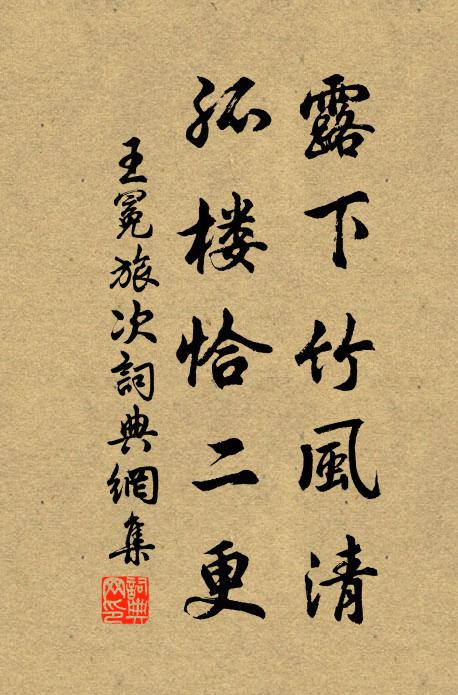 露下竹風清
孤楼恰二更
王冕旅次詞典網集
詞典网印